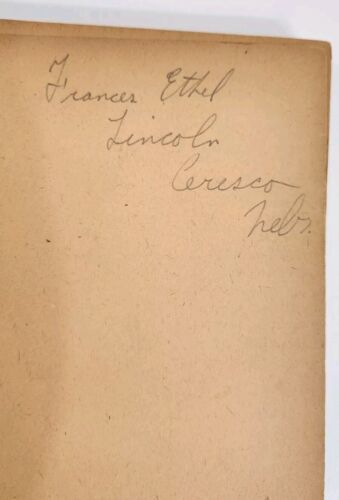 Frances Ethel
Lincoln
Ceresco
Nebr.